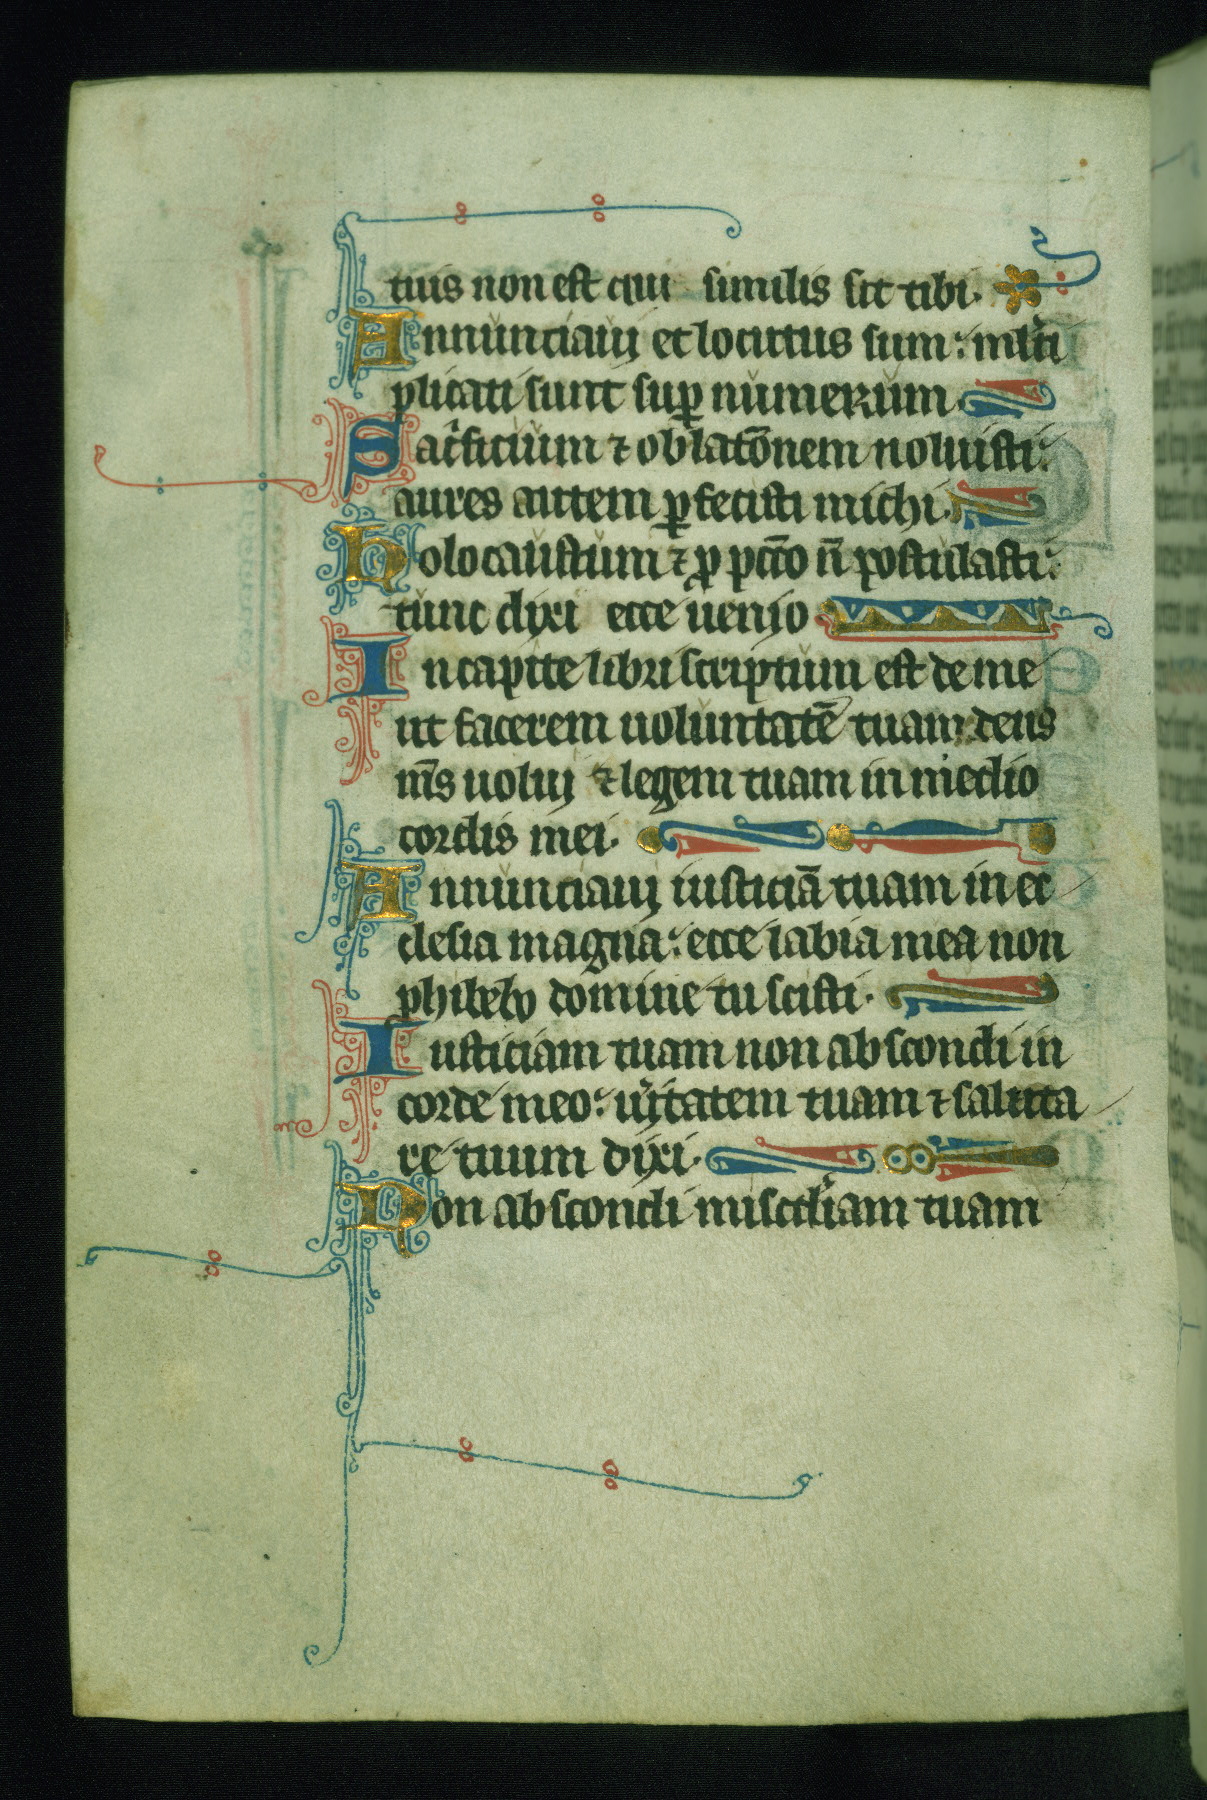 tuis non est qui similis sit tibi.
Annunciauj et locutus sum: ml̾ti
plicati sunt suꝑ numerum
Sac̾ficium ⁊ oblac̄onem noluisti:
aures autem ꝑfecisti michi.
Holocaustum ⁊ ꝓ pcc̄o n̄ postulasti:
tunc dixi ecce uenio
In capite libri scriptum est de me
ut facerem uoluntatē tuam deus
m̄s uoluj ⁊ legem tuam in medio
cordis mei.
Annunciauj iusticiā tuam in ec
clesia magna: ecce labia mea non
ꝓhibebo domine tu scisti.
Iusticiam tuam non abscondi in
corde meo: u̾itatem tuam ⁊ saluta
re tuum dixi.
Non abscondi misc̾diam tuam